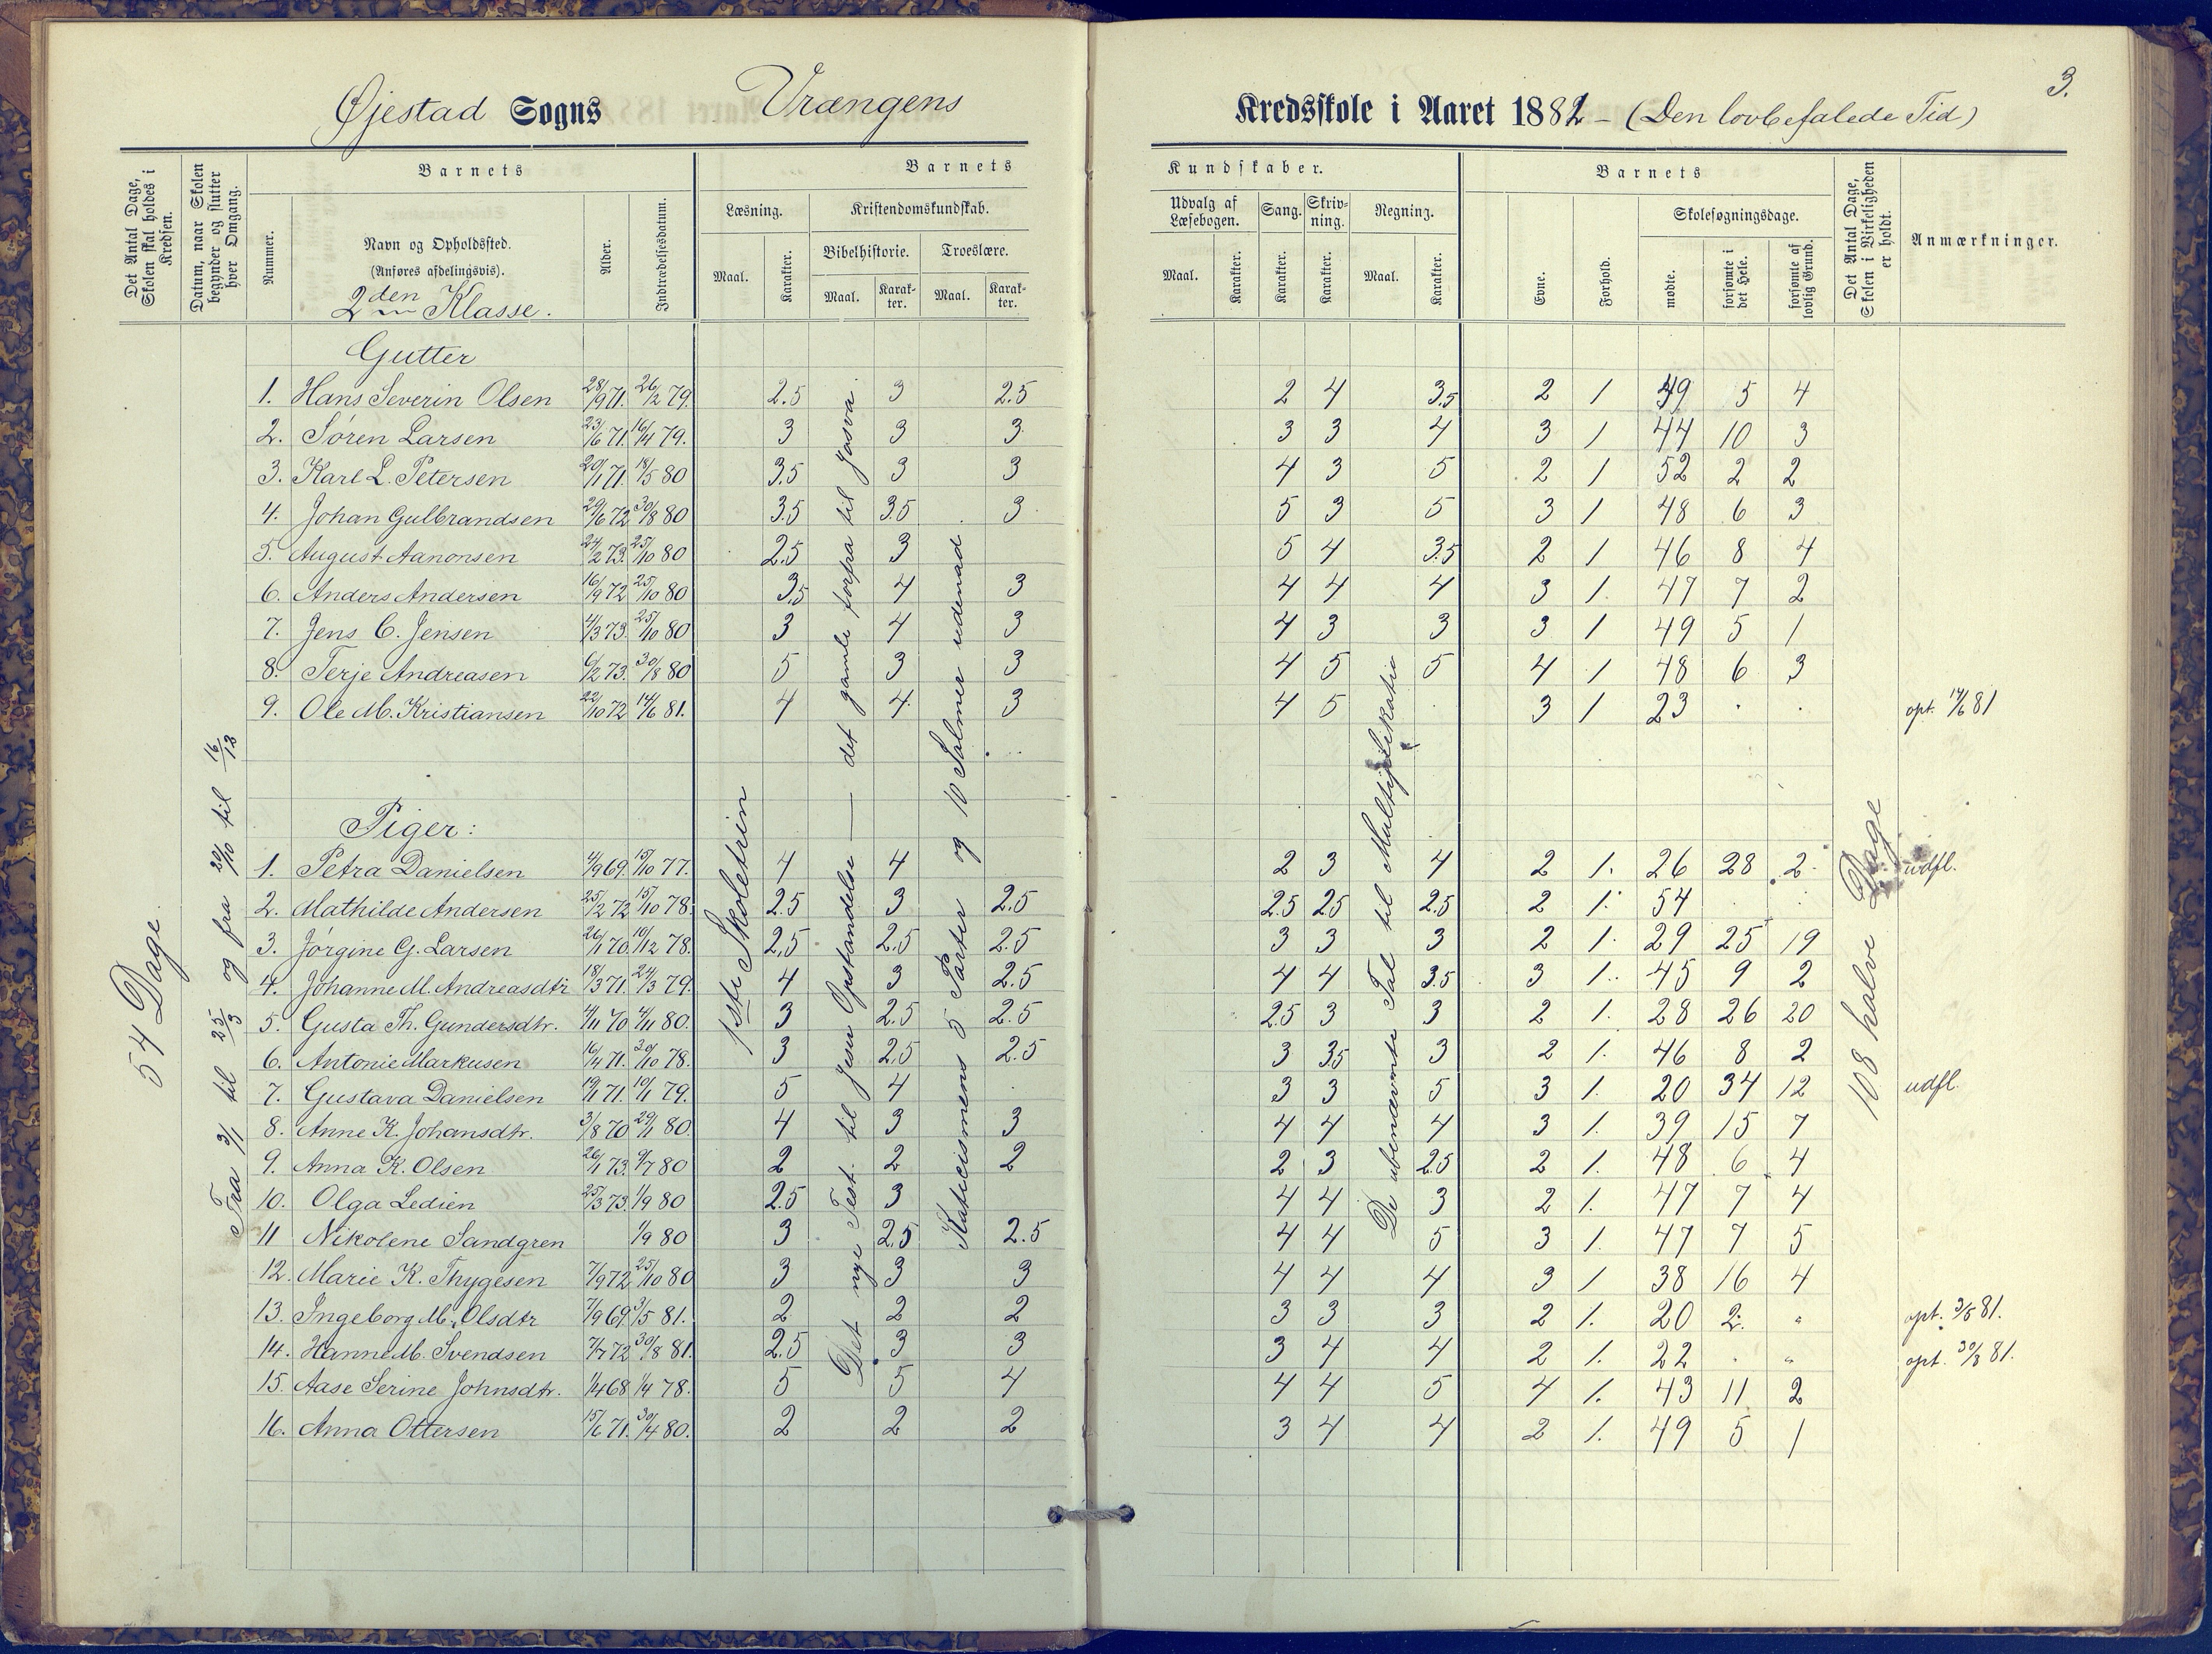 3.
Øjestad Sogns Vrængens Kredsskole i Aaret 1881 - (Den lovbefalede Tid)
Det Antal Dage, Skolen skal holdes i Kredsen.
Datum, naar Skolen begynder og slutter hver Omgang.
Barnets
Nummer.
Navn og Opholdssted.
(Anføres afdelingsvis).
2den Klasse.
Alder.
Indtrædelsesdatum.
Barnets Kundskaber.
Læsning.
Maal. Karakter.
Kristendomskundskab.
Bibelhistorie. Troeslære.
Maal. Karakter. Maal. Karakter.
Udvalg af Læsebogen.
Maal. Karakter.
Sang. Skrivning. Regning.
Karakter. Karakter. Maal. Karakter.
Barnets
Evne. Forhold.
Skolesøgningsdage.
mødte. forsømte i det Hele. forsømte af lovlig Grund.
Det Antal Dage, Skolen i Virkeligheden er holdt.
Anmærkninger.
54 Dage.
Fra 3/1 til 25/3 og fra 20/10 til 16/13
1ste Skoletrin
Det nye Test. til Jesu Opstandelse — det gamle forfra til Josva.
Katicismens 5 Parter og 10 Salmer udenad
De ubenævnte Tal til Multiplikatio
108 halve Dage
Gutter
1. Hans Severin Olsen 28/9 71. 26/2 79. 2.5 3 2.5 2 4 3.5 2 1 49 5 4
2. Søren Larsen 23/6 71. 16/4 79. 3 3 3 3 3 4 3 1 44 10 3
3. Karl L. Petersen 20/1 71. 18/5 80 3.5 3 3 4 3 5 2 1 52 2 2
4. Johan Gulbrandsen 29/6 72 30/8 80 3.5 3.5 3 5 3 5 3 1 48 6 3
5. August Aanonsen 24/2 73. 25/10 80 2.5 3 5 4 3.5 2 1 46 8 4
6. Anders Andersen 16/9 72 25/10 80 3.5 4 3 4 4 4 3 1. 47 7 2
7. Jens C. Jensen 4/3 73. 25/10 80 3 4 3 4 3 3 3 1 49 5 1
8. Terje Andreasen 6/2 73. 30/8 80 5 3 3 4 5 5 4 1 48 6 3
9. Ole M. Kristiansen 22/10 72 14/6 81. 4 4 3 4 5 3 1 23 opt. 14/6 81
Piger:
1. Petra Danielsen 4/9 69. 15/10 77. 4 4 2 3 4 2 1. 26 28 2 udfl.
2. Mathilde Andersen 25/2 72 15/10 78. 2.5 3 2.5 2.5 2.5 2.5 2 1. 54
3. Jørgine G. Larsen 26/1 70. 10/12 78. 2.5 2.5 2.5 3 3 3 2 1. 29 25 19
4. Johanne M. Andreasdtr 18/3 71. 24/3 79. 4 3 2.5 4 4 3.5 3 1. 45 9 2
5. Gusta Th. Gundersdtr. 4/11 70 4/11 80. 3 2.5 2.5 2.5 3 3 2 1. 28 26 20
6. Antonie Markusen 16/4 71. 30/10 78. 3 2.5 2.5 3 3.5 3 2 1. 46 8 2
7. Gustava Danielsen 19/1 71. 10/1 79. 5 4 3 3 5 3 1. 20 34 12 udfl.
8. Anne K. Johansdtr. 3/8 70 29/1 80. 4 3 3 4 4 4 3 1. 39 15 7
9. Anna K. Olsen 26/1 73. 9/7 80 2 2 2 2 3 2.5 2 1. 48 6 4
10. Olga Ledien 25/3 73. 1/9 80 2.5 3 4 4 3 2 1. 47 7 4
11 Nikolene Sandgren 1/9 80 3 2.5 2.5 4 4 5 3 1. 47 7 5
12. Marie K. Thygesen 7/9 72 25/10 80 3 3 3 4 4 4 3 1 38 16 4
13. Ingeborg M. Olsdtr 7/9 69. 3/5 81. 2 2 2 3 3 3 2 1. 20 2. opt. 3/5 81.
14. Hanne M. Svendsen 7/7 72 30/8 81. 2.5 3 3 3 4 4 2 1. 22 opt. 30/8 81.
15. Aase Serine Johnsdtr. 1/4 68. 1/4 78. 5 5 4 4 4 5 4 1. 43 11 2
16. Anna Ottersen 15/6 71. 30/4 80. 2 2 2 3 4 4 2 1. 49 5 1